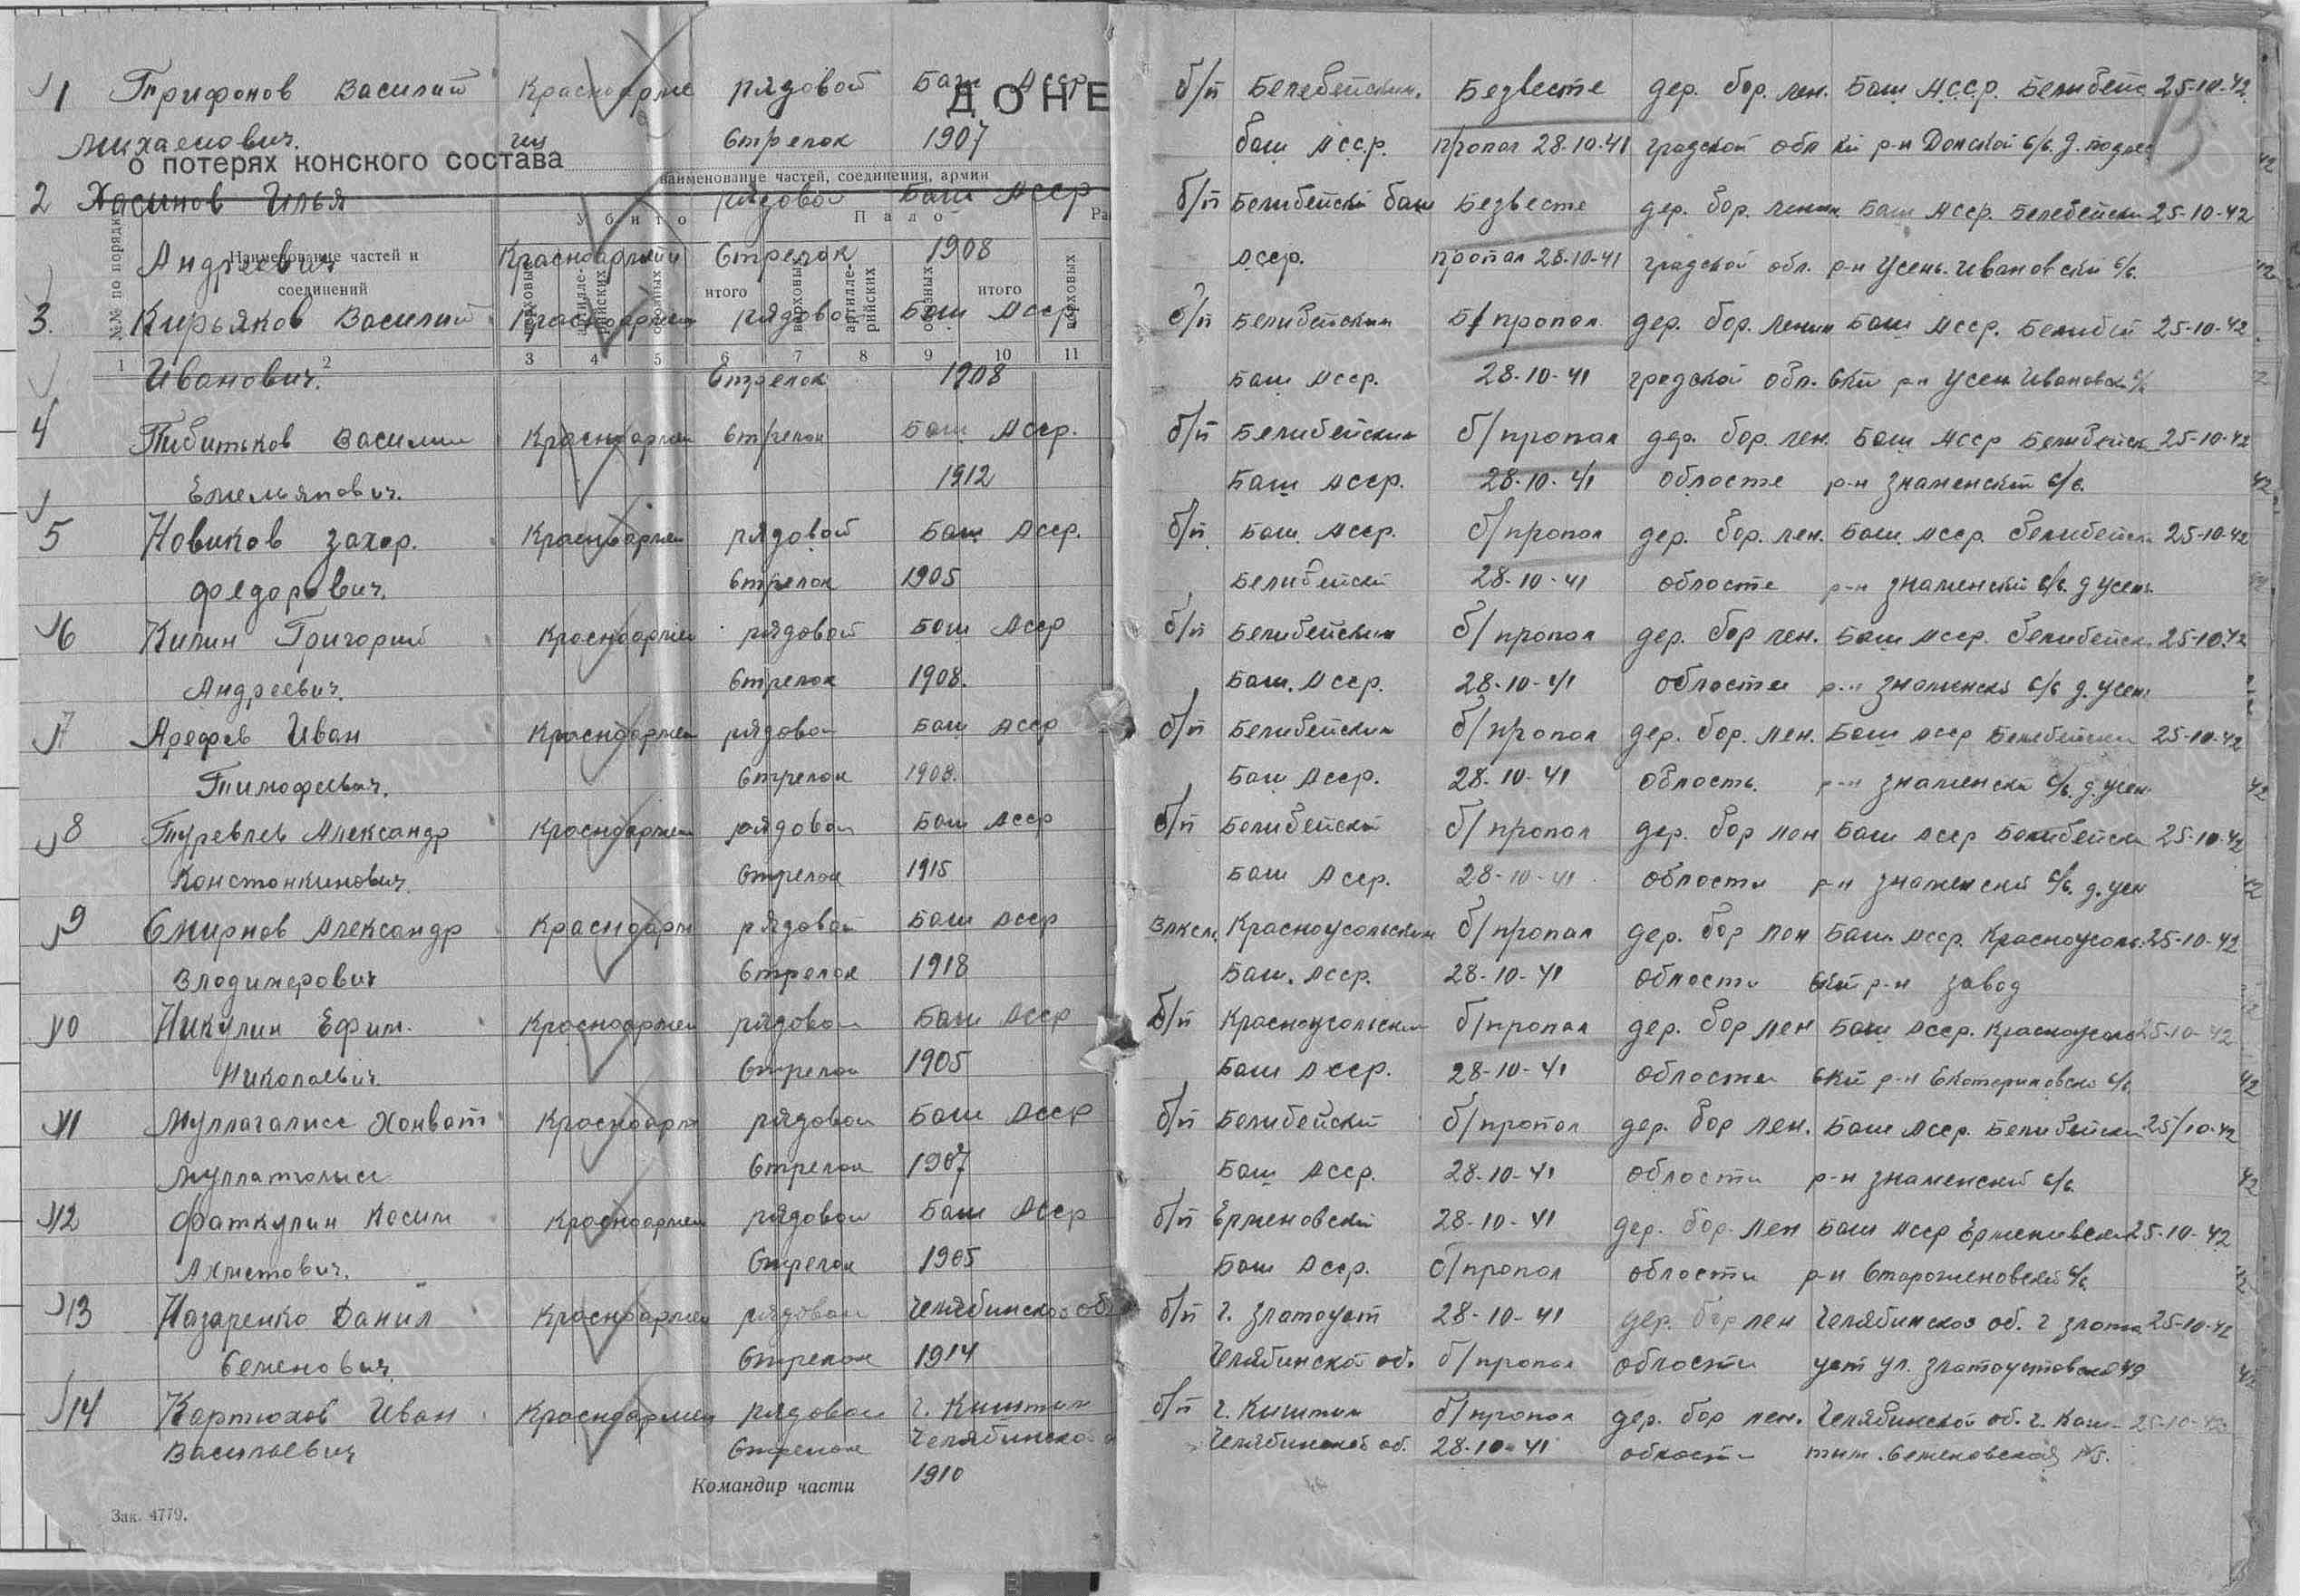 1 Трифонов Василий Красноарме рядовой Баш Асср б/п Белебейским. Безвесте дер. бор. лен. Баш АССР. Белибейс 25-10-42
ДОНЕ
Михаелович. ец Стрелок 1907 баш АССР. пропал 28-10-41 градской обл кий р-н Донской с/с. д.
о потерях конского состава
наименование частей, соединения, армии
2 Хасинов Илья рядовой Баш Асср б/п Белибейский баш Безвесте дер. бор. ленин Баш Асср. Белебейски 25-10-42
Убито Пало Ра
Андреевич Красноармий Стрелок 1908 Асср. пропал 28-10-41 градской обл. р-н Усень. Ивановский с/с.
№№ по порядку Наименование частей и соединений верховых артиллерийских обозных итого верховых артиллерийских обозных итого верховых
3. Кирьяков Василий Красноармей рядовой Баш Асср б/п Белибейским Б/пропал дер. бор. Ленин Баш Асср. Белибей 25-10-42
1 2 3 4 5 6 7 8 9 10 11
Иванович. Стрелок 1908 Баш Асср. 28-10-41 градской обл. ский р-н Усен Ивановски с/с
4 Тибитьков Василии Красноармей стрелок Баш Асср. б/п Белибейским б/пропал дер. бор. лен. Баш Асср Белибейск 25-10-42
Емельянович. 1912 Баш Асср. 28-10-41 областе р-н Знаменский с/с.
5 Новиков Захар. Красноармеи рядовой Баш Асср. б/п Баш Асср. б/пропал дер. бор. лен. Баш Асср. белибейски 25-10-42
Федорович. Стрелок 1905 Белибейский 28-10-41 областе р-н Знаменский с/с. д Усень
6 Килин Григорий Красноармеи рядовой Баш Асср б/п Белибейским б/пропал дер. бор лен. Баш Асср. белибейск. 25-10.42
Андреевич. Стрелок 1908. Баш. Асср. 28-10-41 области р-н Знаменски с/с д. Усен
7 Арефев Иван Красноармеи рядовои Баш Асср б/п Белибейским б/пропал дер. бор. лен. Баш Асср Белебейски 25-10-42
Тимофеевич. Стрелок 1908. Баш Асср. 28-10-41 область. р-н Знаменски с/с. д. Усен
8 Туревлев Александр Красноармеи рядовои Баш Асср б/п Белибейский б/пропал дер. бор лен Баш Асср Белибейски 25-10-42
Констонкинович. Стрелок 1915 Баш Асср. 28-10-41 области р-н Знаменский с/с. д. Усен
9 Смирнов Александр Красноарм рядовои Баш Асср Влксм. Красноусольским б/пропал дер. бор лен Баш. Асср. Красноусоль. 25-10-42
Владимерович Стрелок 1918 Баш. Асср. 28-10-41 области ский р-н завод
10 Никулин Ефим. Красноармеи рядовои Баш Асср б/п Красноусольским б/пропал дер. бор лен Баш Асср. Красноусоль 25-10-42
Николаевич. Стрелок 1905 Баш Асср. 28-10-41 области ский р-н Екотериновско с/с.
11 Муллагалиев Ханват Красноарм рядовои Баш Асср б/п Белибейский б/пропал дер. бор лен. Баш Асср. Белибейски 25/10-42
Стрелок 1907 Баш Асср. 28-10-41 области р-н Знаменский с/с.
12 Фаткулин Касим Красноармеи рядовои Баш Асср б/п Ермековский 28-10-41 дер. бор. лен Баш Асср 25-10-42
Ахметович. Стрелок 1905 Баш Асср. б/пропал области р-н с/с
13 Назаренко Данил Красноармеи рядовои Челябинскоо об б/п г. Златоуст 28-10-41 дер. бор лен Челябинскоя об. г злато 25-10-42
Семенович. Стрелок 1914 Челябинской об. б/пропал области уст ул. Златоустовская 49
14 Картюхов Иван Красноармеи рядовои г. Киштим б/п г. Киштим б/пропал дер. бор лен. Челябинской об. г. Каш- 25-10-42
Васильевич Стрелок Челябинской Челябинской об. 28-10-41 области тым. Семеновская
1910
Командир части
Зак. 4779.